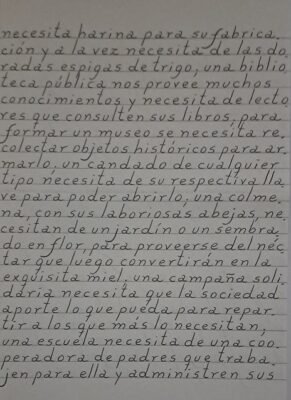 necesita harina para su fabrica.
ción y a la vez necesita de las do
radas espigas de trigo, una biblio
teca pública nos provee muchos
conocimientos y necesita de lecto
res que consulten sus libros, para
formar un museo se necesita re.
colectar objetos históricos para ar
marlo, un candado de cualquier
tipo necesita de su respectiva lla.
ve para poder abrirlo, una colme.
na, con sus laboriosas abejas, ne.
cesitan de un jardín o un sembra.
do en flor, para proveerse del néc
tar que luego convertirán en la
exquisita miel. una campaña soli.
daria necesita que la sociedad
aporte lo que pueda para repar.
tir a los que más lo necesitan,
una escuela necesita de una coo.
peradora de padres que traba.
jen para ella y administren sus